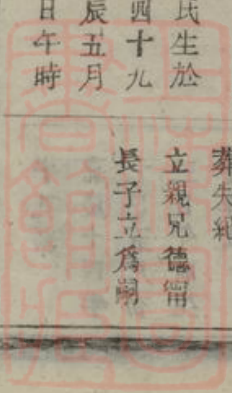 氏生於
四十九
辰五月
日午時
葬失紀
立親兄德甯
長子立爲嗣